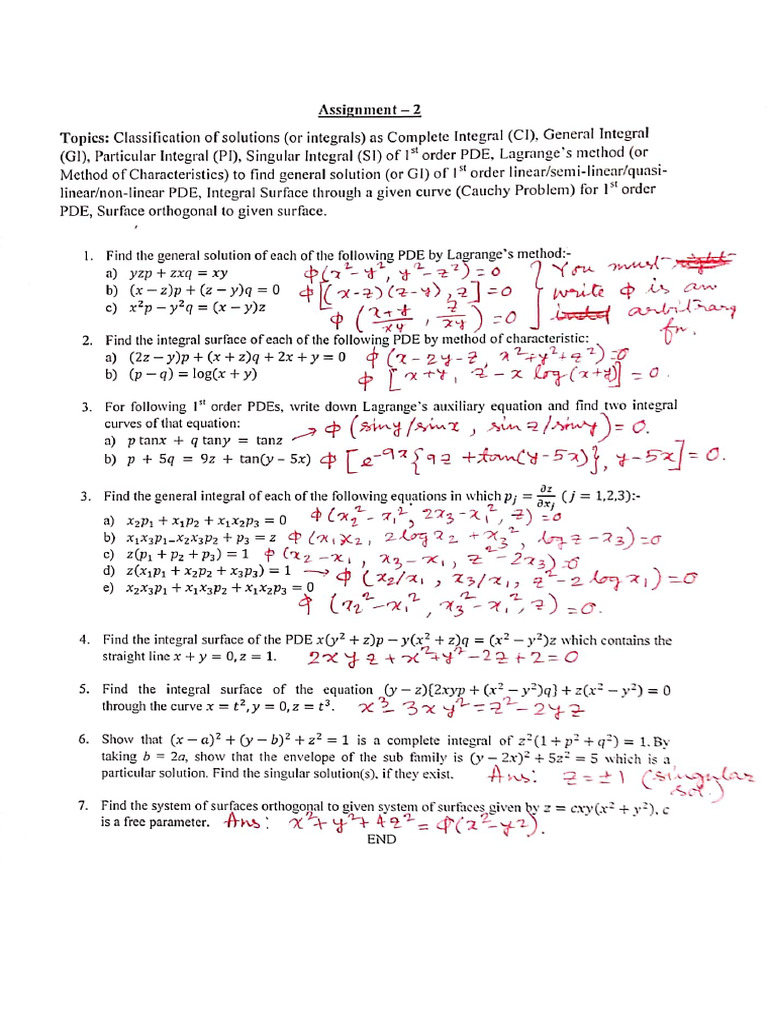 Assignment – 2
Topics: Classification of solutions (or integrals) as Complete Integral (CI), General Integral
(GI), Particular Integral (PI), Singular Integral (SI) of 1st order PDE, Lagrange's method (or
Method of Characteristics) to find general solution (or GI) of 1st order linear/semi-linear/quasi-
linear/non-linear PDE, Integral Surface through a given curve (Cauchy Problem) for 1st order
PDE, Surface orthogonal to given surface.
1. Find the general solution of each of the following PDE by Lagrange's method:-
a) yzp + zxq = xy ϕ(x² - y², y² - z²) = 0 } You must
b) (x − z)p + (z − y)q = 0 ϕ[(x-z)(z-y), z] = 0 write ϕ is an
c) x²p − y²q = (x − y)z ϕ(x+y/xy, z/xy) = 0 arbitrary
fn.
2. Find the integral surface of each of the following PDE by method of characteristic:
a) (2z − y)p + (x + z)q + 2x + y = 0 ϕ(x - 2y - z, x² + y² + z²) = 0
b) (p − q) = log(x + y) ϕ[x+y, z - x log(x+y)] = 0.
3. For following 1st order PDEs, write down Lagrange's auxiliary equation and find two integral
curves of that equation:
a) p tanx + q tany = tanz → ϕ(siny/sinx, sinz/siny) = 0.
b) p + 5q = 9z + tan(y − 5x) ϕ[e^-9x{9z + tan(y-5x)}, y-5x] = 0.
3. Find the general integral of each of the following equations in which pⱼ = ∂z/∂xⱼ (j = 1,2,3):-
a) x₂p₁ + x₁p₂ + x₁x₂p₃ = 0 ϕ(x₂² - x₁², 2x₃ - x₁², z) = 0
b) x₁x₃p₁−x₂x₃p₂ + p₃ = z ϕ(x₁x₂, 2 log x₂ + x₃², log z - x₃) = 0
c) z(p₁ + p₂ + p₃) = 1 ϕ(x₂ - x₁, x₃ - x₁, z² - 2x₃) = 0
d) z(x₁p₁ + x₂p₂ + x₃p₃) = 1 → ϕ(x₂/x₁, x₃/x₁, z² - 2 log x₁) = 0
e) x₂x₃p₁ + x₁x₃p₂ + x₁x₂p₃ = 0 ϕ(x₂² - x₁², x₃² - x₁², z) = 0.
4. Find the integral surface of the PDE x(y² + z)p − y(x² + z)q = (x² − y²)z which contains the
straight line x + y = 0, z = 1. 2xyz + x² + y² - 2z + 2 = 0
5. Find the integral surface of the equation (y − z){2xyp + (x² − y²)q} + z(x² − y²) = 0
through the curve x = t², y = 0, z = t³. x³ - 3xy² = z² - 2yz
6. Show that (x − a)² + (y − b)² + z² = 1 is a complete integral of z²(1 + p² + q²) = 1. By
taking b = 2a, show that the envelope of the sub family is (y − 2x)² + 5z² = 5 which is a
particular solution. Find the singular solution(s), if they exist. Ans: z = ±1 (singular
sol.)
7. Find the system of surfaces orthogonal to given system of surfaces given by z = cxy(x² + y²), c
is a free parameter. Ans: x² + y² + 4z² = ϕ(x² - y²).
END